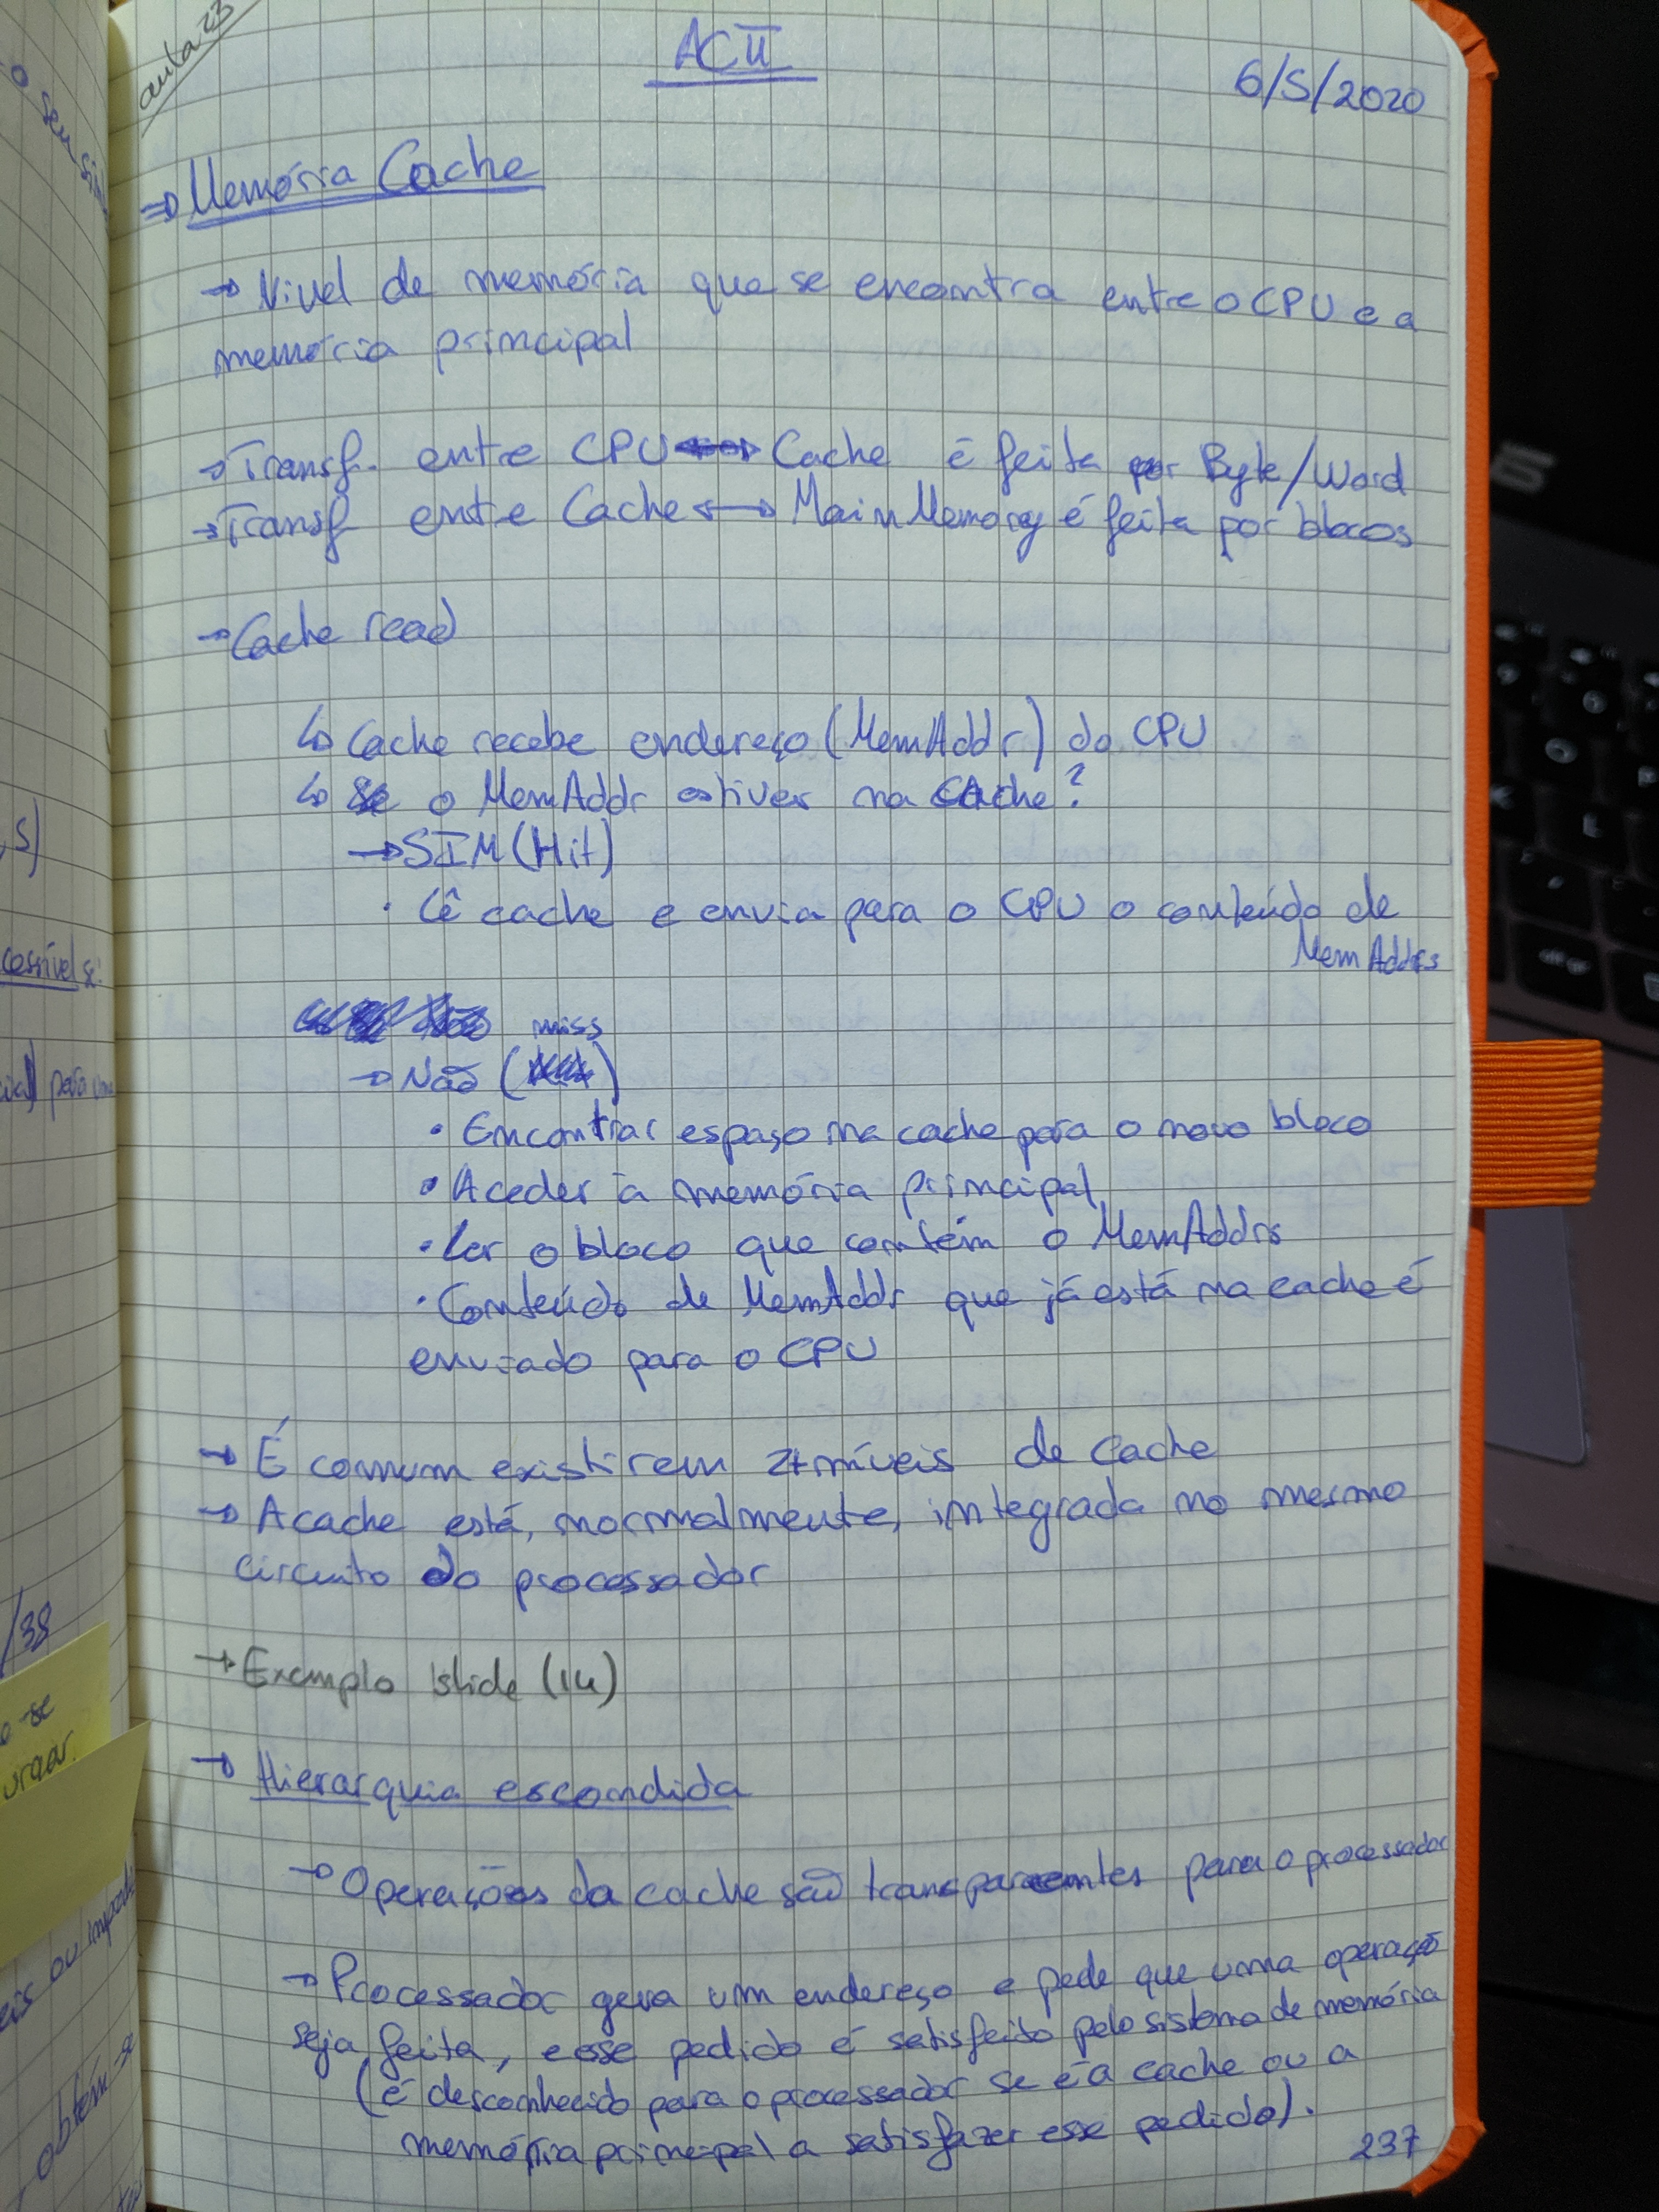 aula 23
ACII
6/5/2020
⇒ Memória Cache
→ Nivel de memória que se encontra entre o CPU e a
memória principal
→ Transf. entre CPU ↔ Cache é feita por Byte/Word
→ Transf entre Cache ↔ Main Memory é feita por blocos
→ Cache read
↳ Cache recebe endereço (MemAddr) do CPU
↳ Se o MemAddr estiver na cache?
→ SIM (Hit)
• Lê cache e envia para o CPU o conteúdo de
MemAddrs
miss
→ Não ( )
• Encontrar espaço na cache para o novo bloco
• Aceder à memória principal
• Ler o bloco que contém o MemAddrs
• Conteúdo de MemAddr que já está na cache é
enviado para o CPU
→ É comum existirem 2+ níveis de cache
→ A cache está, normalmente, integrada no mesmo
circuito do processador
→ Exemplo slide (14)
→ Hierarquia escondida
→ Operações da cache são transparentes para o processador
→ Processador gera um endereço e pede que uma operação
seja feita, e esse pedido é satisfeito pelo sistema de memória
(é desconhecido para o processador se é a cache ou a
memória principal a satisfazer esse pedido).
237
o seu
,S)
para
/38
o-se
ou
obtém-se